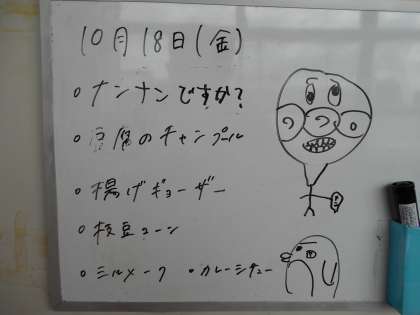 10月18日(金)
・ナンナンですか?
・豆腐のチャンプル
・揚げギョーザー
・枝豆コーン
・ミルメーク ・カレーシチュー